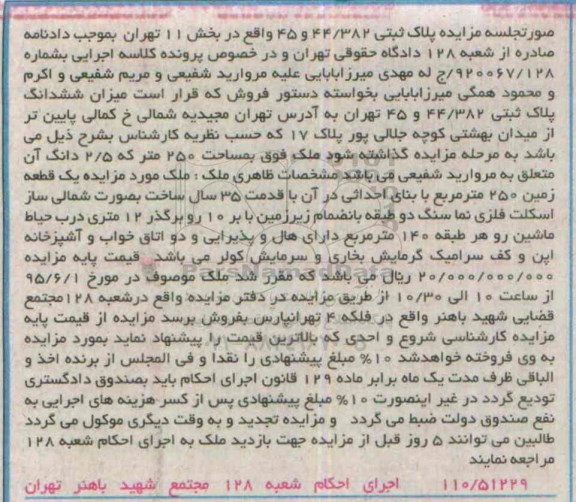 صورتجلسه مزایده پلاک ثبتی ۴۴/۳۸۲ و ۴۵ واقع در بخش ۱۱ تهران بموجب دادنامه
صادره از شعبه ۱۲۸ دادگاه حقوقی تهران و در خصوص پرونده کلاسه اجرایی بشماره
۹۲۰۰۶۷/۱۲۸/ج له مهدی میرزابابایی علیه مروارید شفیعی و مریم شفیعی و اکرم
و محمود همگی میرزابابایی بخواسته دستور فروش که قرار است میزان ششدانگ
پلاک ثبتی ۴۴/۳۸۲ و ۴۵ تهران به آدرس تهران مجیدیه شمالی خ کمالی پایین تر
از میدان بهشتی کوچه جلالی پور پلاک ۱۷ که حسب نظریه کارشناس بشرح ذیل می
باشد به مرحله مزایده گذاشته شود ملک فوق بمساحت ۲۵۰ متر که ۲/۵ دانگ آن
متعلق به مروارید شفیعی می باشد مشخصات ظاهری ملک : ملک مورد مزایده یک قطعه
زمین ۲۵۰ مترمربع با بنای احداثی در آن با قدمت ۳۵ سال ساخت بصورت شمالی ساز
اسکلت فلزی نما سنگ دو طبقه بانضمام زیرزمین با بر ۱۰ رو برگذر ۱۲ متری درب حیاط
ماشین رو هر طبقه ۱۴۰ مترمربع دارای هال و پذیرایی و دو اتاق خواب و آشپزخانه
اپن و کف سرامیک گرمایش بخاری و سرمایش کولر می باشد قیمت پایه مزایده
۲۰/۰۰۰/۰۰۰/۰۰۰ ریال می باشد که مقرر شد ملک موصوف در مورخ ۹۵/۶/۱
از ساعت ۱۰ الی ۱۰/۳۰ از طریق مزایده در دفتر مزایده واقع درشعبه ۱۲۸مجتمع
قضایی شهید باهنر واقع در فلکه ۴ تهرانپارس بفروش برسد مزایده از قیمت پایه
مزایده کارشناسی شروع و احدی که بالاترین قیمت را پیشنهاد نماید بمورد مزایده
به وی فروخته خواهدشد ۱۰% مبلغ پیشنهادی را نقدا و فی المجلس از برنده اخذ و
الباقی ظرف مدت یک ماه برابر ماده ۱۲۹ قانون اجرای احکام باید بصندوق دادگستری
تودیع گردد در غیر اینصورت ۱۰% مبلغ پیشنهادی پس از کسر هزینه های اجرایی به
نفع صندوق دولت ضبط می گردد و مزایده تجدید و به وقت دیگری موکول می گردد
طالبین می توانند ۵ روز قبل از مزایده جهت بازدید ملک به اجرای احکام شعبه ۱۲۸
مراجعه نمایند
۱۱۰/۵۱۲۲۹ اجرای احکام شعبه ۱۲۸ مجتمع شهید باهنر تهران